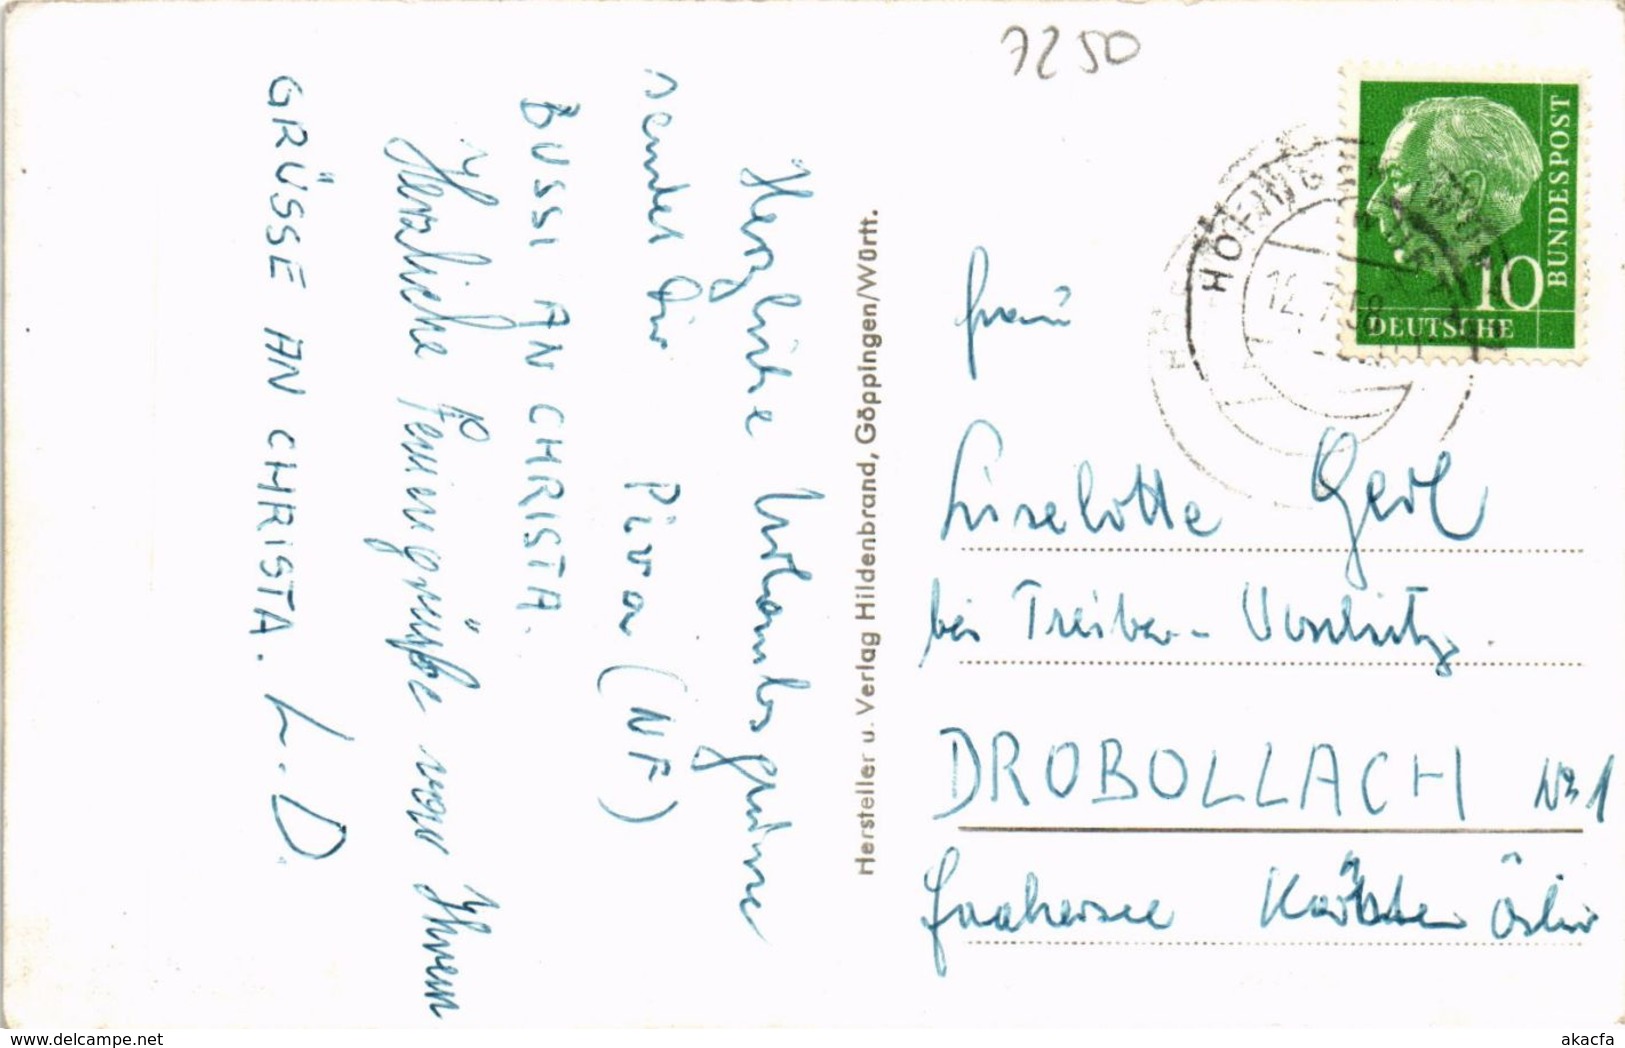 7250
BUNDESPOST
10
DEUTSCHE
HÖFINGEN
12.7.58
Herzliche Urlaubsgrüsse
sendet Dir Piva (NF)
BUSSI AN CHRISTA.
Herzliche Feriengrüße von Ihrem
GRÜSSE AN CHRISTA. L.D.
Hersteller u. Verlag Hildenbrand, Göppingen/Württ.
Frau
Liselotte
bei Treiber-
DROBOLLACH Nr. 1
Faakersee Kärnten Österr
akacfa